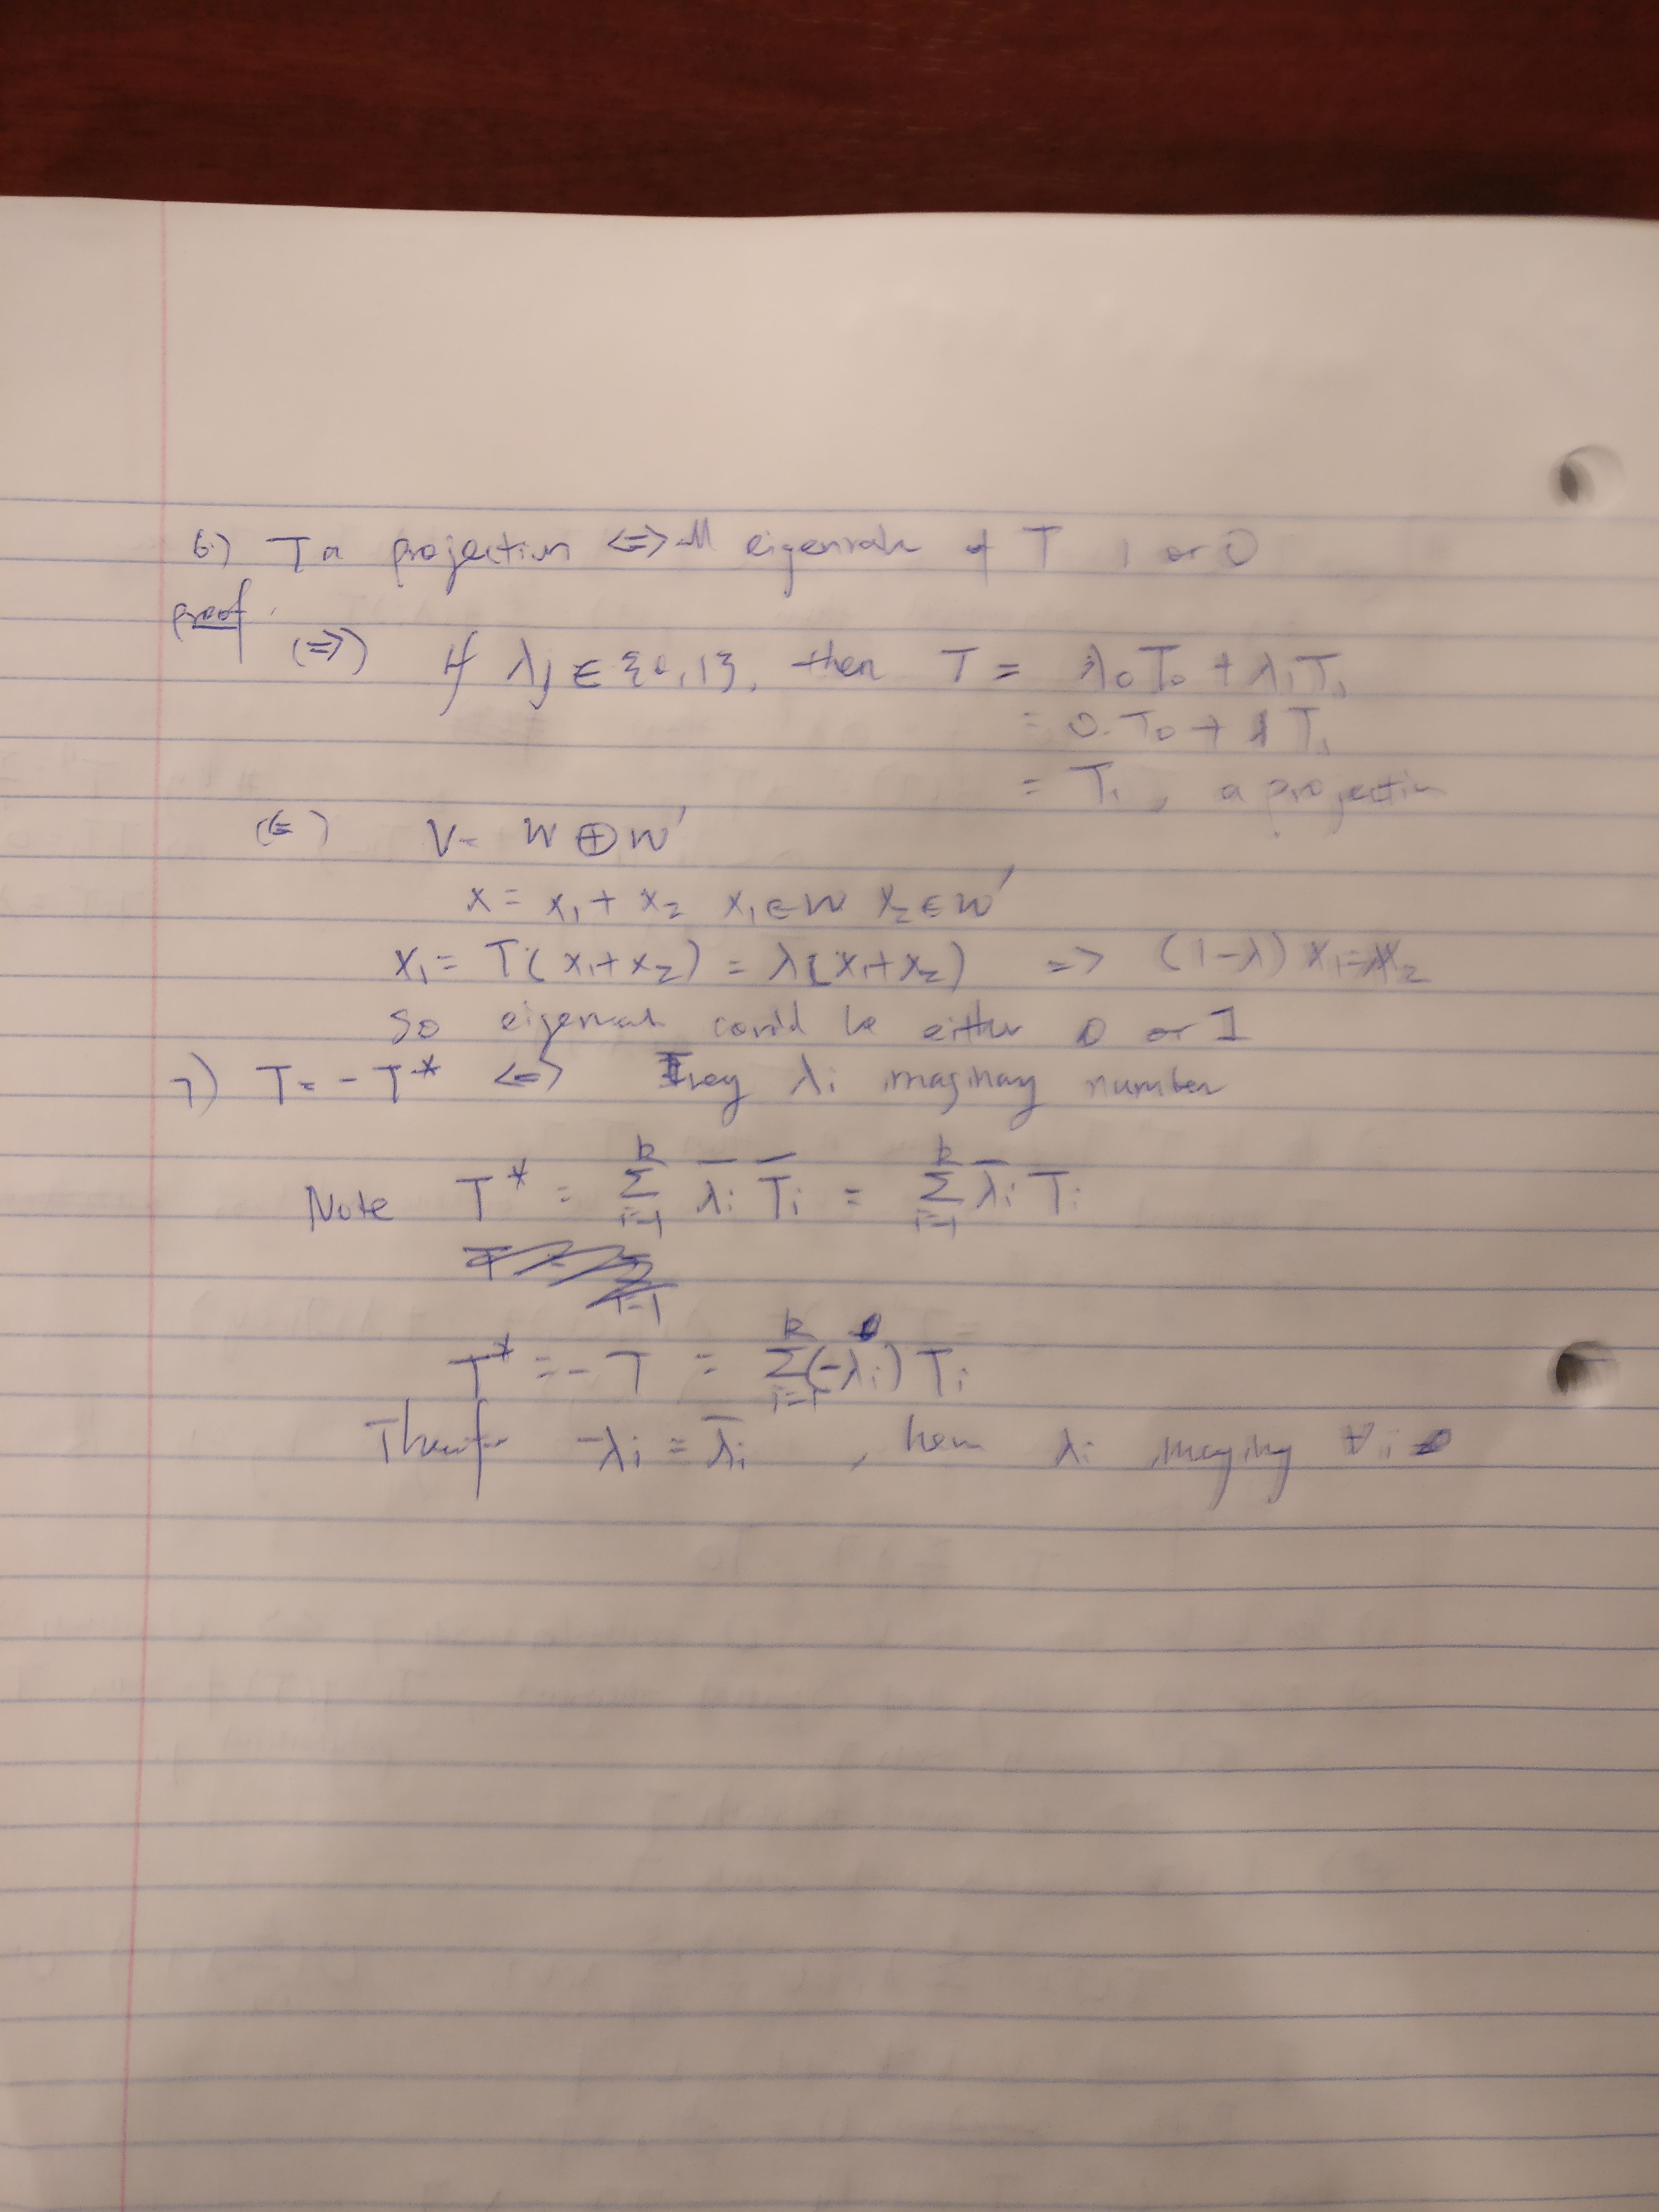 6.) T a projection <=> all eigenvalue of T 1 or 0
proof.
(=>) If λj ∈ {0,1}, then T = λ0T0 + λ1T1
= 0·T0 + 1T1
= T1, a projection
(<=) V = W ⊕ W'
x = x1 + x2 x1 ∈ W x2 ∈ W'
x1 = T(x1+x2) = λ(x1+x2) => (1-λ)x1 = λx2
So eigenvalue could be either 0 or 1
7) T = -T* <=> Every λi imaginary number
Note T* = Σ_{i=1}^{k} λ̄i T̄i = Σ_{i=1}^{k} λ̄i Ti
T* = -T = Σ_{i=1}^{k} (-λi) Ti
Therefore -λi = λ̄i, hence λi imaginary ∀i